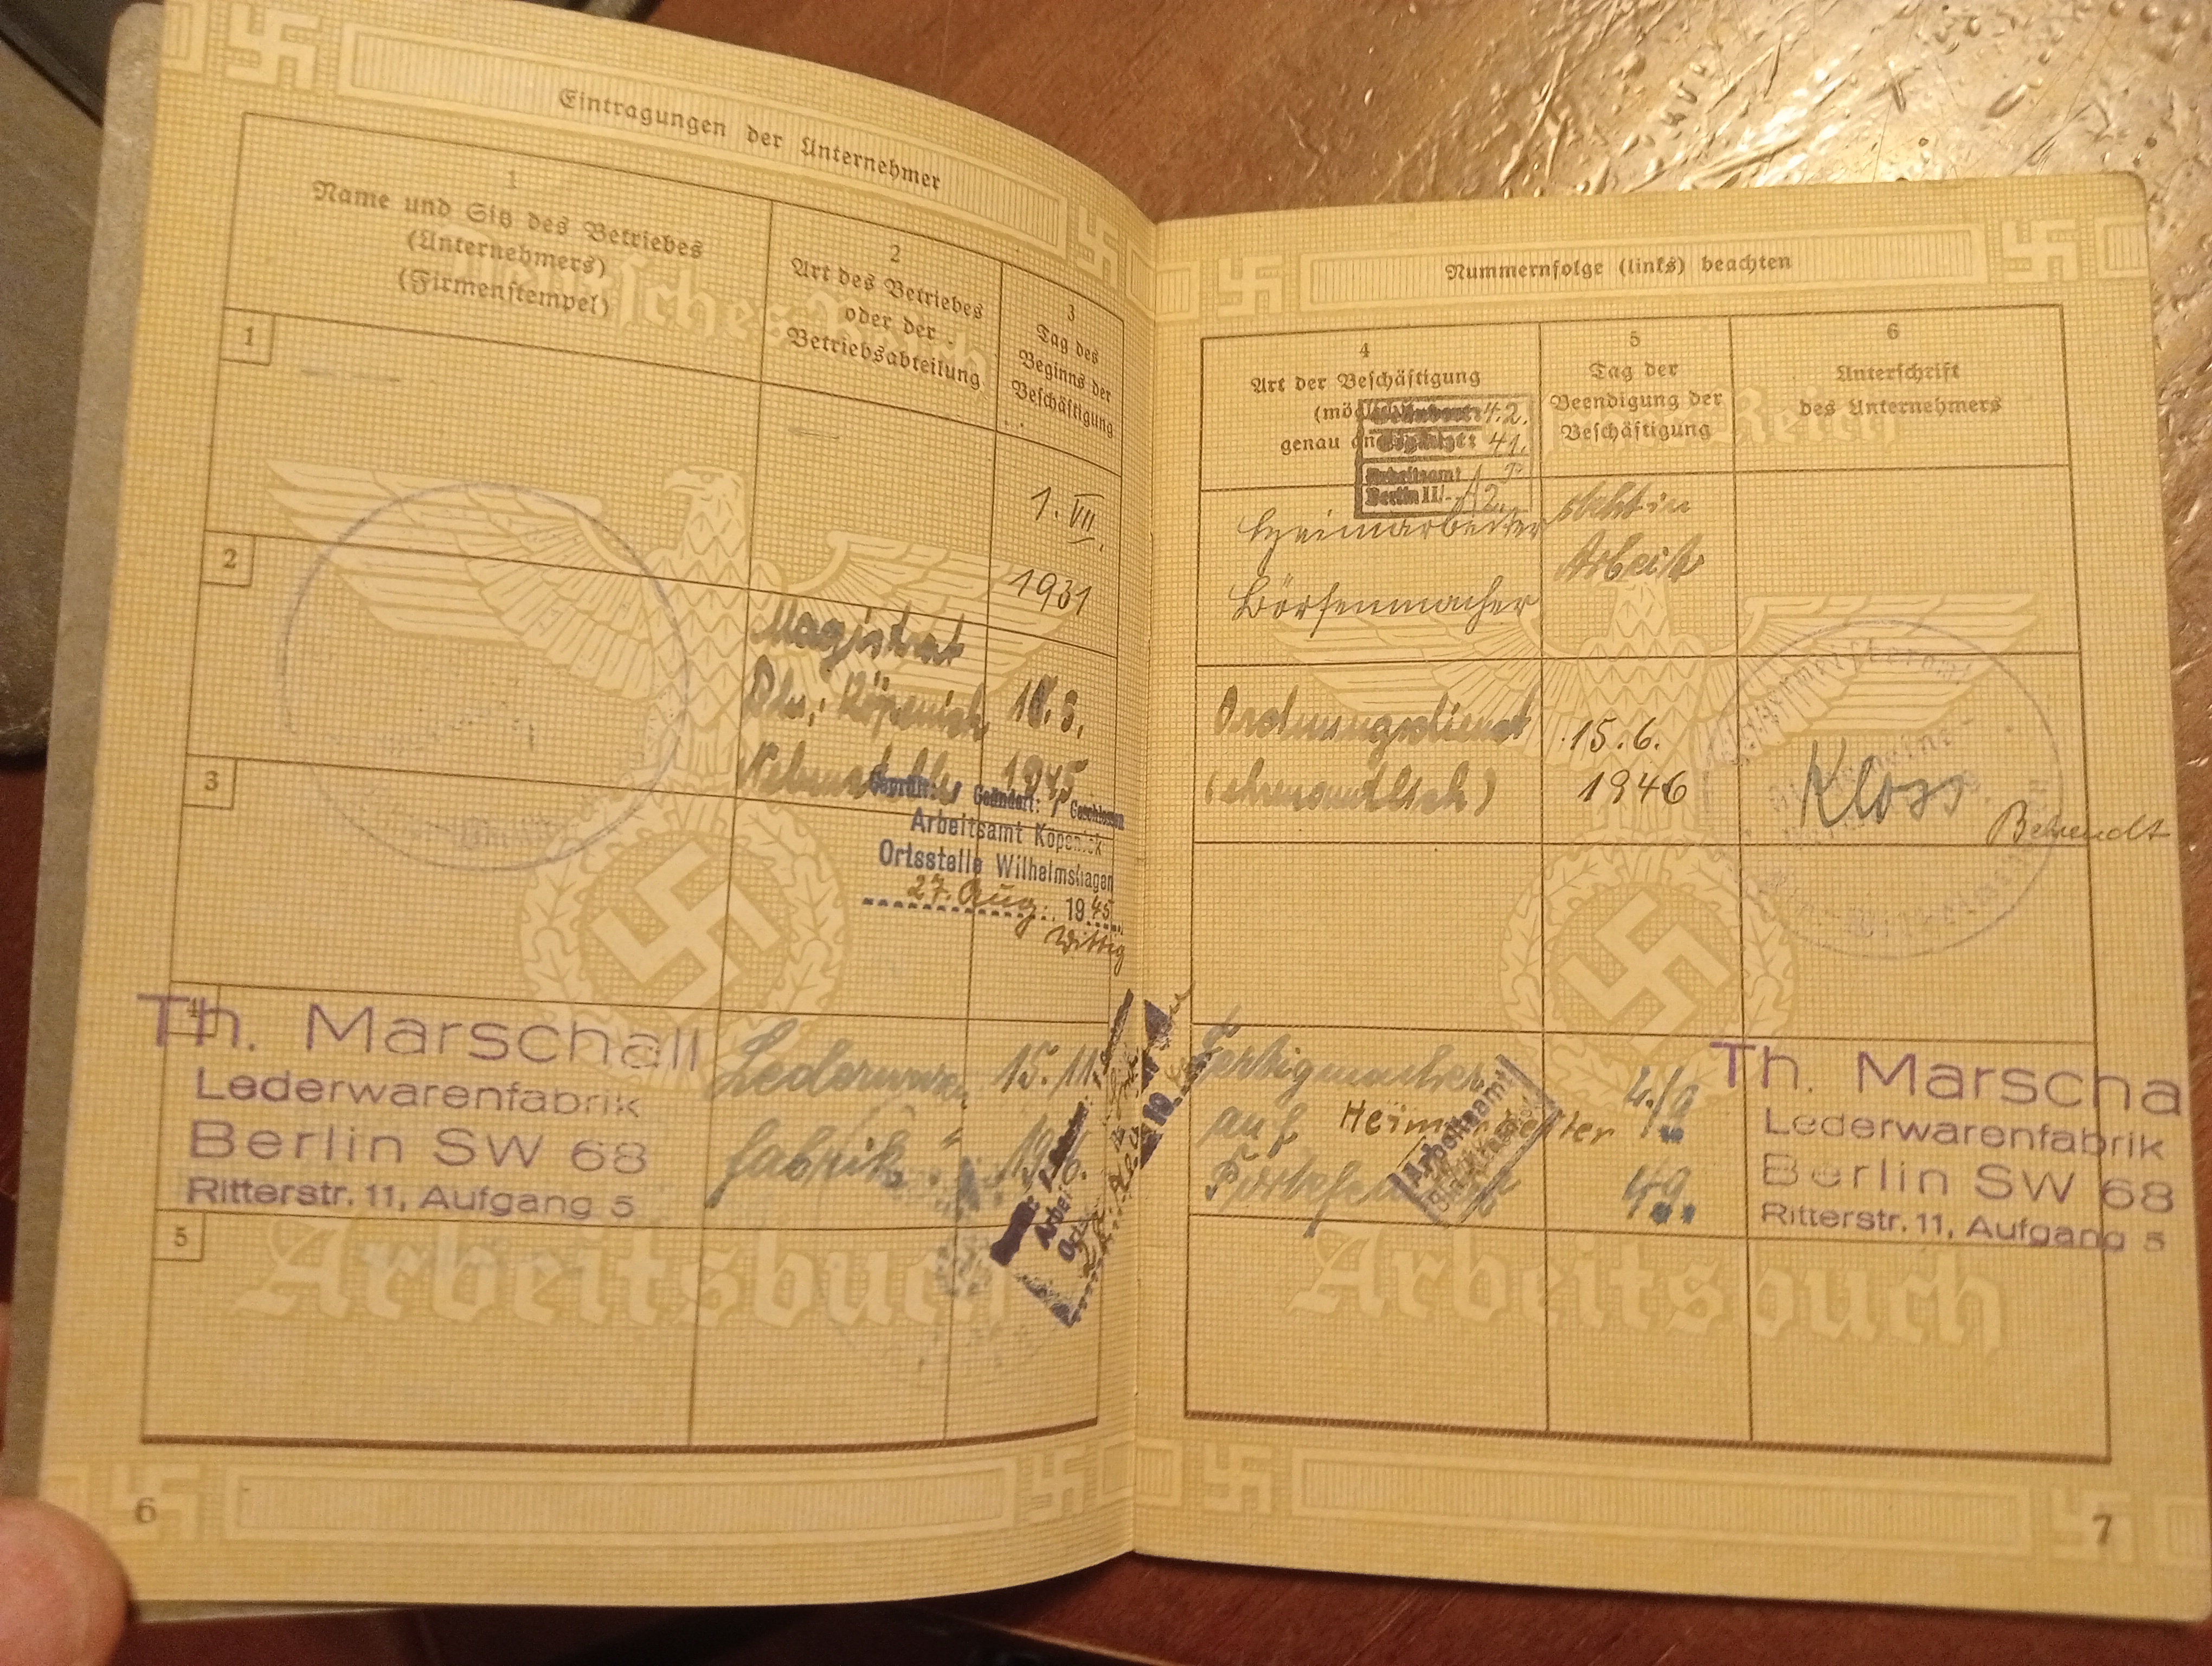 Eintragungen der Unternehmer
1
Name und Sitz des Betriebes
(Unternehmers)
(Firmenstempel)
2
Art des Betriebes
oder der
Betriebsabteilung
3
Tag des
Beginns der
Beschäftigung
1
1. VII.
1931
2
Magistrat
Bln. Köpenick
18. 5.
1945
3
Geprüft: Geändert: Geschlossen
Arbeitsamt Köpenick
Ortsstelle Wilhelmshagen
27. Aug. 1945
Wittig
4
Th. Marschall
Lederwarenfabrik
Berlin SW 68
Ritterstr. 11, Aufgang 5
Lederwaren
fabrik
15. 11.
1946.
5
Deutsches Reich
Arbeitsbuch
6
Nummernfolge (links) beachten
4
Art der Beschäftigung
genau
5
Tag der
Beendigung der
Beschäftigung
6
Unterschrift
des Unternehmers
42.
41.
Arbeitsamt
Berlin II
Heimarbeiter
Börsenmacher
steht in
Arbeit
Ordnungsdienst
(ehrenamtlich)
15. 6.
1946
Kloss
Behrendt
Fertigmacher
auf Heimarbeiter
Arbeitsamt
49.
Th. Marscha
Lederwarenfabrik
Berlin SW 68
Ritterstr. 11, Aufgang 5
Reich
Arbeitsbuch
7